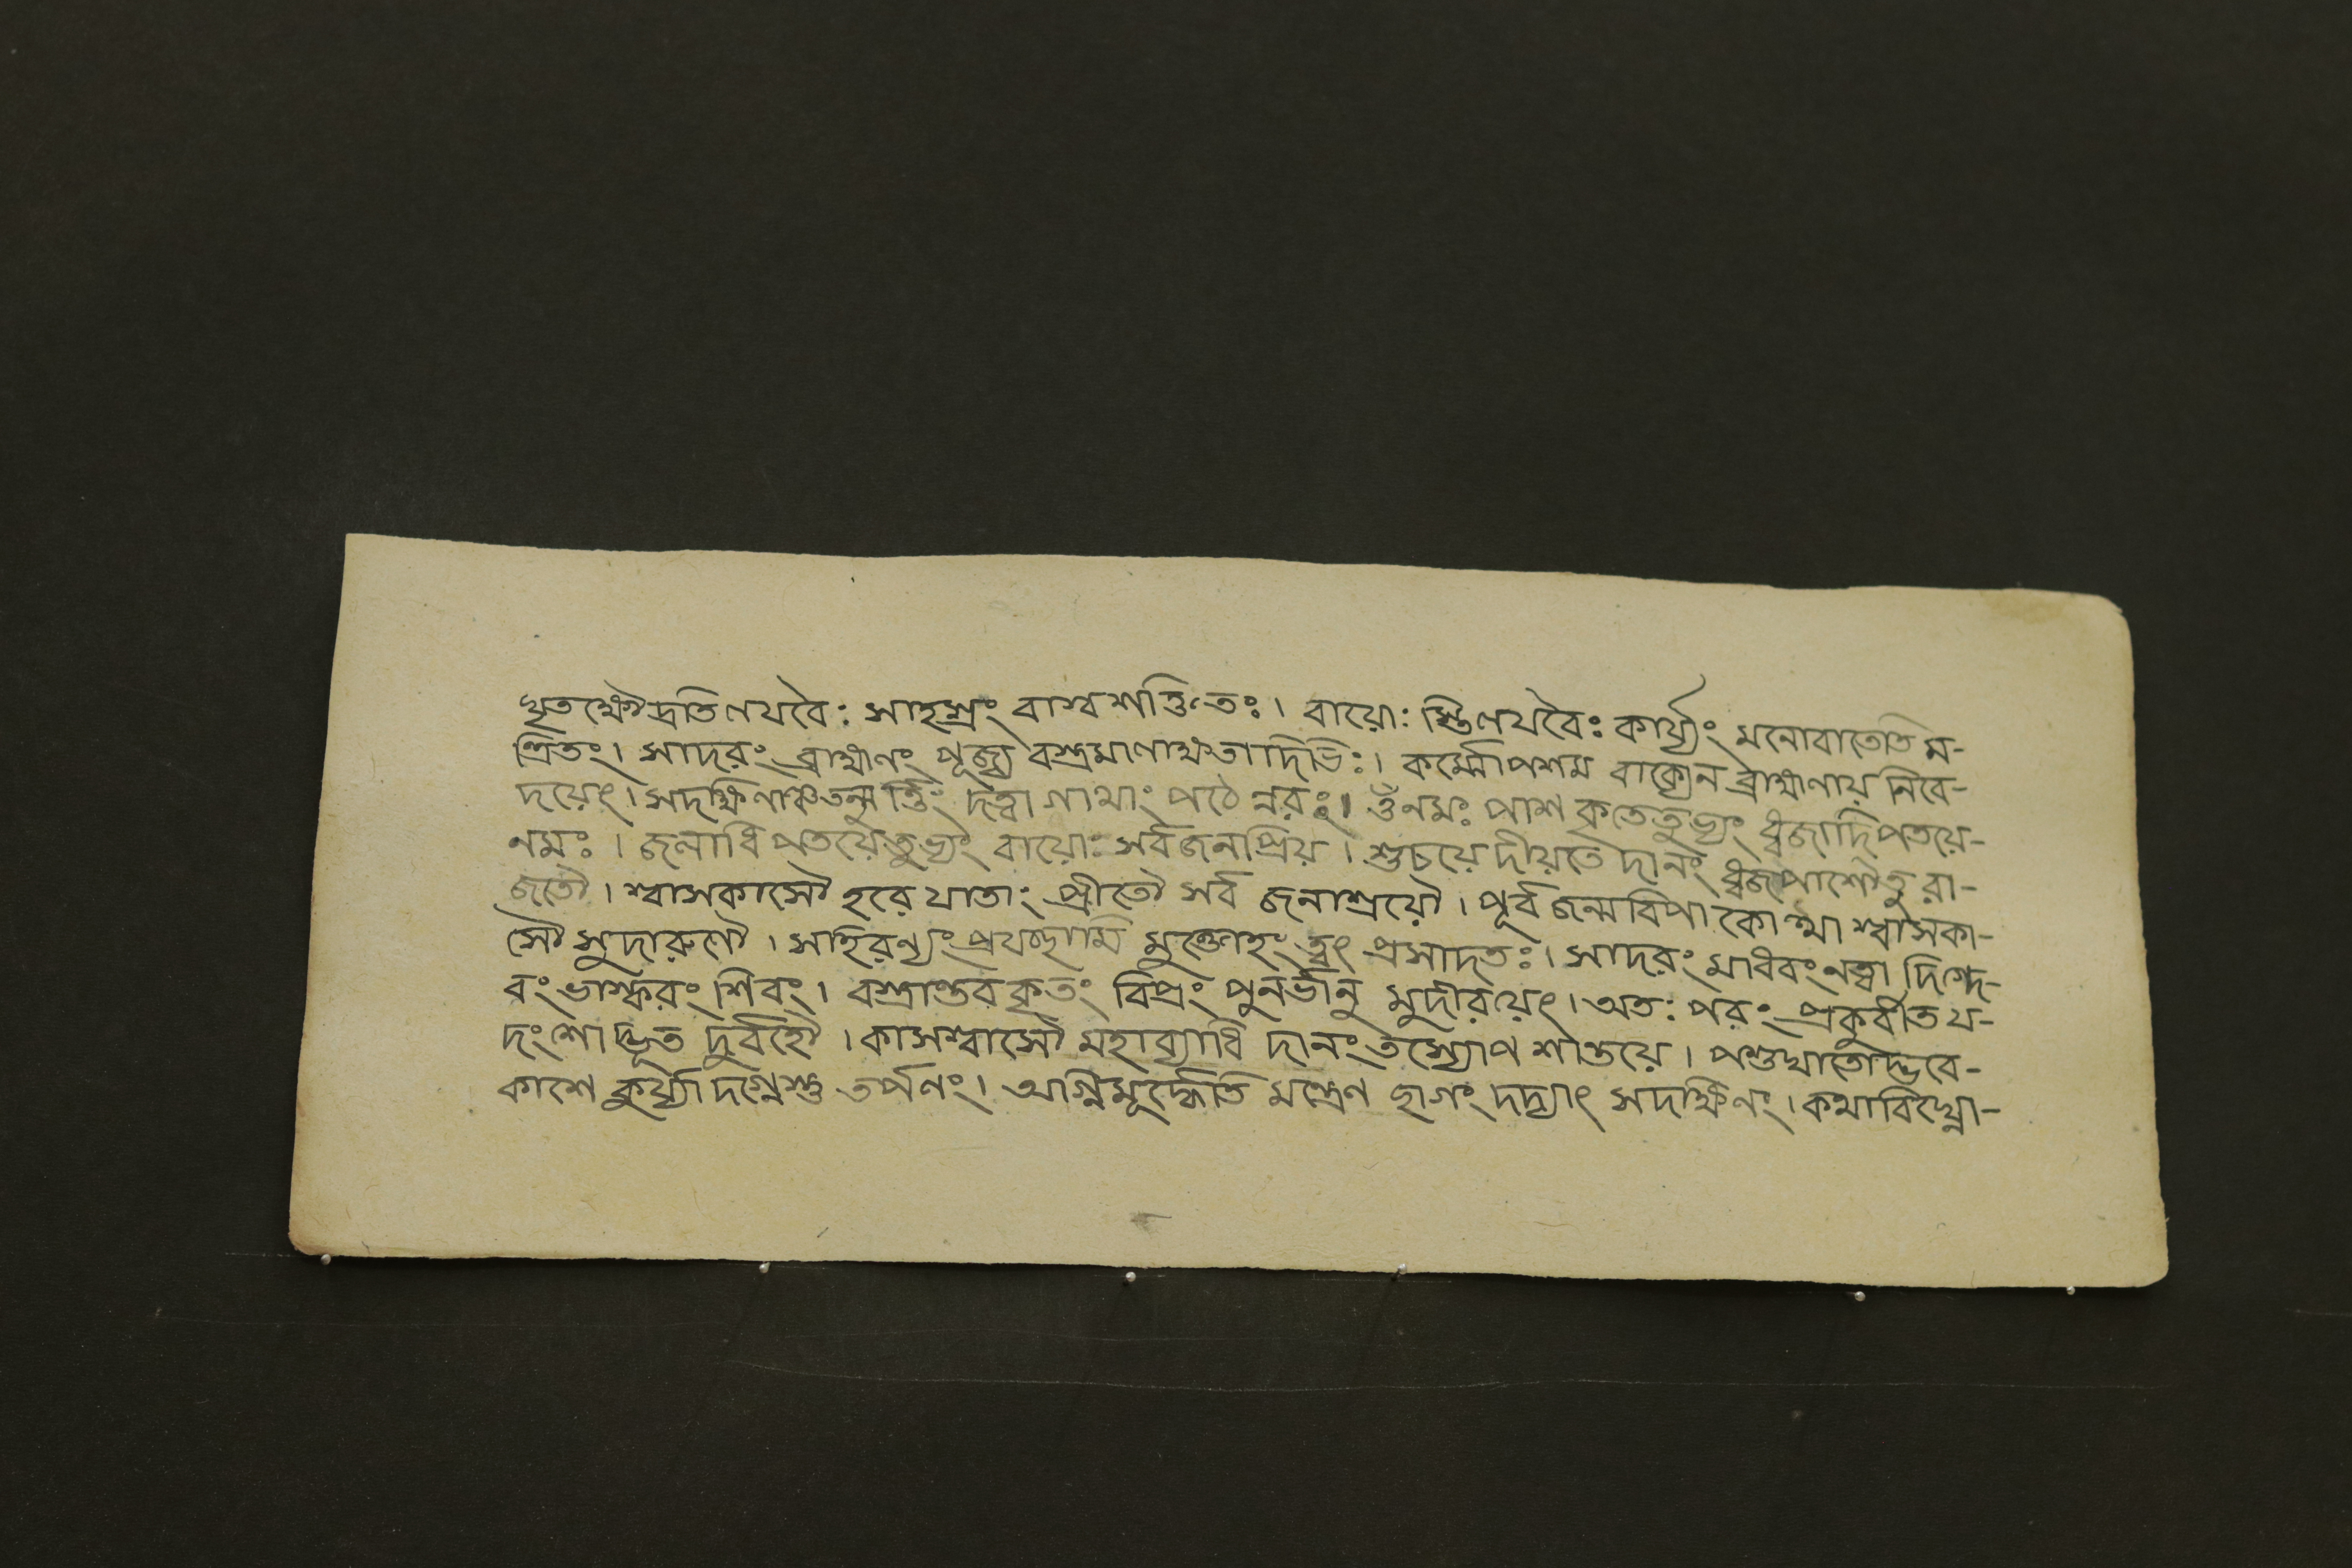 ঘৃতক্ষৌদ্রতিণযবৈঃ সাহস্রং বাশ্বশক্তিতঃ। বায়োঃ স্তিণযবৈঃ কার্য্যং মনোবাতেতি ম-
ন্ত্রিতং। সাদরং ব্রাহ্মণং পূজ্য বস্ত্রমাণাক্ষতাদিভিঃ। কর্ম্মোপশম বাক্যেন ব্রাহ্মণায় নিবে-
দয়েৎ। সদক্ষিণাঞ্চতন্মূর্ত্তিং দত্বা গাথাং পঠেন্নরঃ। ওঁনমঃ পাশকৃতেতুভ্যং ধ্বজাদিপতয়ে-
নমঃ। জনাধিপতয়েতুভ্যং বায়োঃ সর্বজনপ্রিয়। শুচয়েদীয়তে দানং ধ্বজপাশৌতু রা-
জতৌ। শ্বাসকাসৌ হরেযাতাং প্রীতৌ সর্ব জনাশ্রয়ৌ। পূর্বজন্মবিপাকোত্থা শ্বাসকা-
সৌ সুদারুণৌ। সহিরণ্যং প্রযচ্ছামি মুক্তোহং ত্বৎ প্রসাদতঃ। সাদরং মাধবং নত্বা দিগ্দে-
বং ভাস্করং শিবং। বস্ত্রান্তর কৃতং বিপ্রং পুনর্ভানু মুদীরয়েৎ। অতঃ পরং প্রকুর্বীত য-
দংশোদ্ভূত দুর্বহৌ। কাসশ্বাসৌ মহাব্যাধি দানং তস্যোপশান্তয়ে। পশুঘাতোদ্ভবে-
কাশে কুর্য্যাদগ্নেস্তু তর্পণং। অগ্নিমূর্দ্ধেতি মন্ত্রেণ ছাগং দদ্যাৎ সদক্ষিণং। কথাবিঘ্নো-